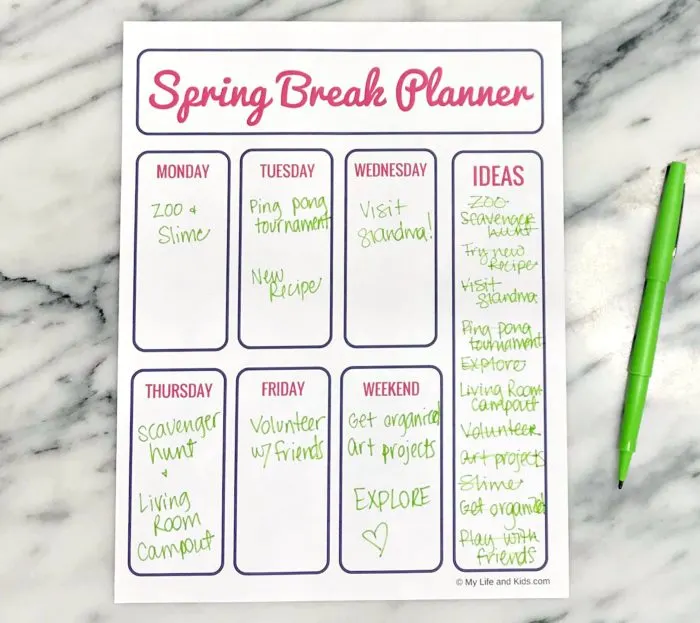 Spring Break Planner
MONDAY
Zoo &
Slime
TUESDAY
Ping pong
tournament
New
Recipe
WEDNESDAY
Visit
grandma!
IDEAS
Zoo
Scavenger
hunt
Try new
Recipe
Visit
grandma
Ping pong
tournament
Explore
Living Room
campout
Volunteer
art projects
Slime
Get organized
Play with
friends
THURSDAY
Scavenger
hunt
&
Living
Room
Campout
FRIDAY
Volunteer
w/ friends
WEEKEND
Get organized
Art projects
EXPLORE
© My Life and Kids.com